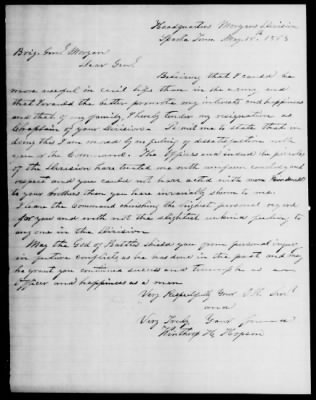 Headquarters Morgans Division
Sparta Tenn May 15th 1863
Brig. Genl Morgan
Dear Genl.
Believing that I could be
more useful in civil life than in the army and
that I would the better promote my interests and happiness
and that of my family, I hereby tender my resignation as
Chaplain of your Division. Permit me to state that in
doing this I am moved by no feeling of dissatisfaction with
you or the Command. The Officers and indeed the privates
of the Division have treated me with uniform courtesy and
respect and you could not have acted with more kindness
to your brothers than you have invariably shown to me.
I leave the Command cherishing the highest personal regard
for you and with not the slightest unkind feeling to
any one in the Division
May the God of Battles shield you from personal injury
in future conflicts as he has done in the past and may
he grant you continued success and triumphs as an
officer and happiness as a man
Very Respectfully Your Ob. Servt.
and
Very Truly Your friend
Winthrop H. Hopson